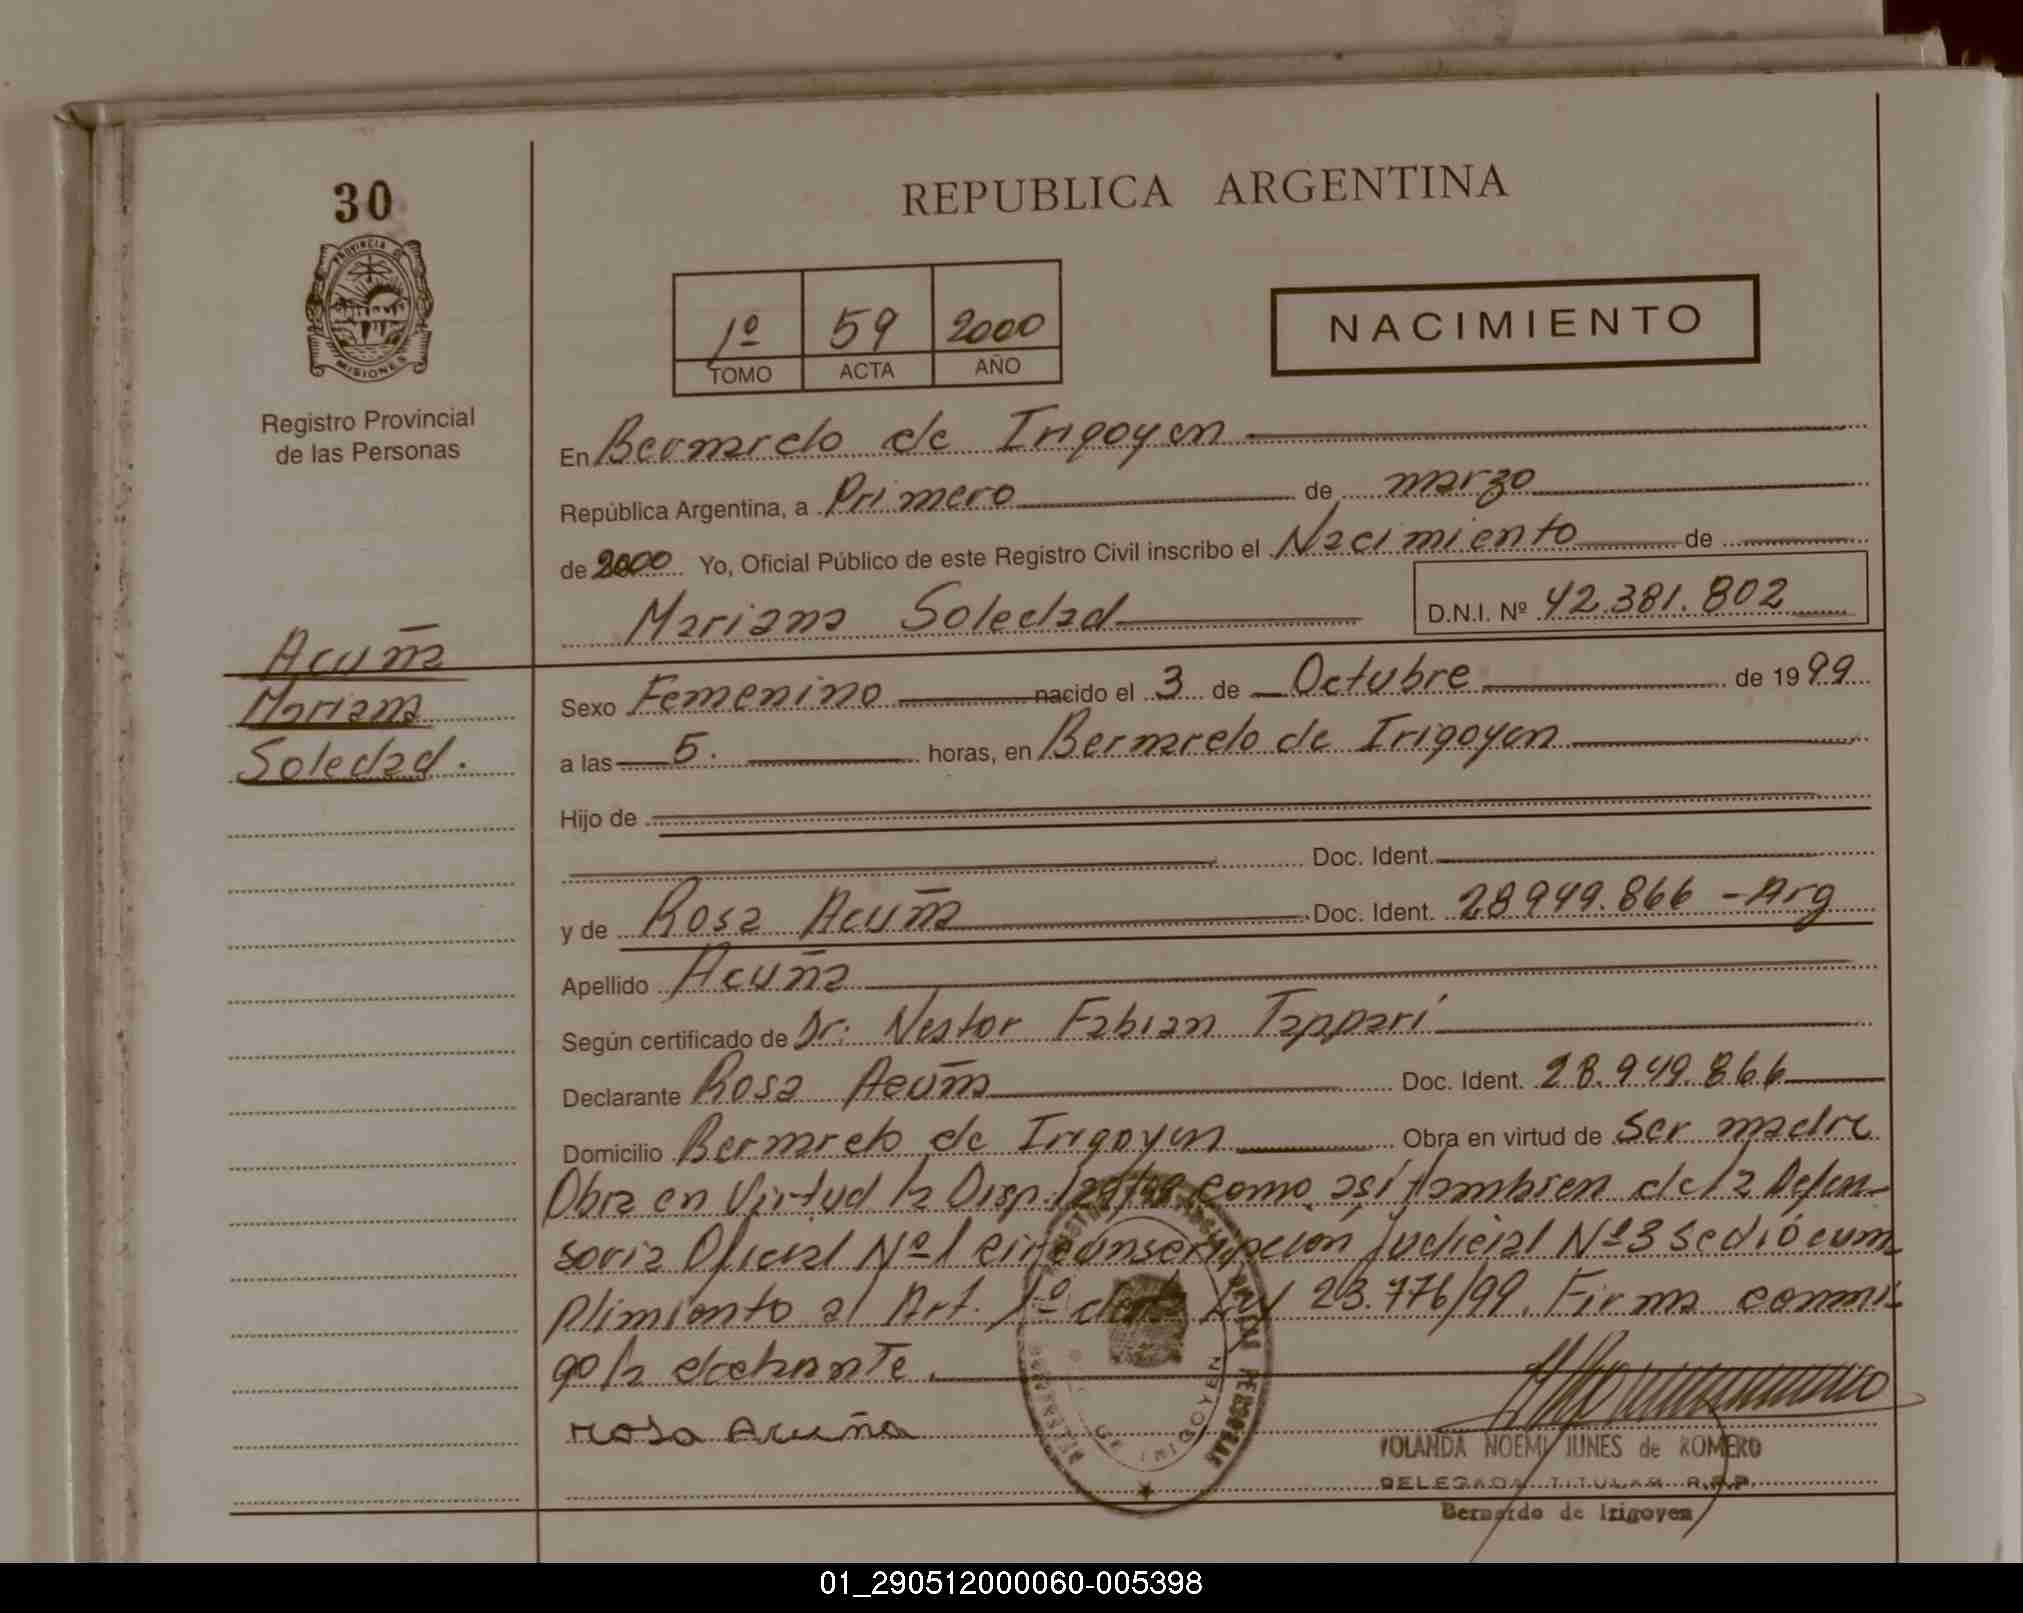 30
PROVINCIA DE
MISIONES
Registro Provincial
de las Personas
Acuña
Mariana
Soledad.
REPUBLICA ARGENTINA
1º 59 2000
TOMO ACTA AÑO
NACIMIENTO
En Bernardo de Irigoyen
República Argentina, a Primero de marzo
de 2000 Yo, Oficial Público de este Registro Civil inscribo el Nacimiento de
Mariana Soledad D.N.I. Nº 42.381.802
Sexo Femenino nacido el 3 de Octubre de 1999
a las 5. horas, en Bernardo de Irigoyen
Hijo de
Doc. Ident.
y de Rosa Acuña Doc. Ident. 28949.866 - Arg
Apellido Acuña
Según certificado de Dr. Nestor Fabian Tappari
Declarante Rosa Acuña Doc. Ident. 28.949.866
Domicilio Bernardo de Irigoyen Obra en virtud de ser madre
Obra en Virtud la Disp. como así tambien de la Defen-
soria Oficial Nº 1 circunscripcion judicial Nº 3 se dió cum
plimiento al Art. 1º de la Ley 23.776/99. Firma conmi-
go la declarante.
rosa Acuña
YOLANDA NOEMI JUNES de ROMERO
DELEGADA TITULAR R.P.P.
Bernardo de Irigoyen
01_290512000060-005398